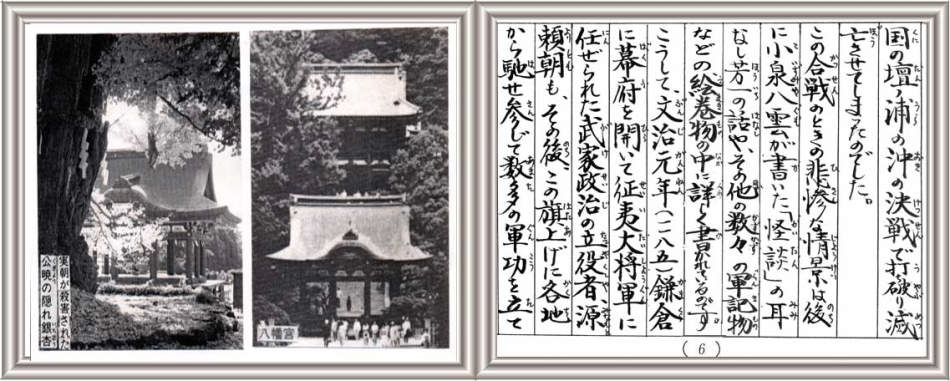 国の壇ノ浦の沖の決戦で打破り滅
亡させてしまったのでした。
この合戦のときの悲惨な情景は後
に小泉八雲が書いた「怪談」の耳
なし芳一の話や、その他の数々の軍記物
などの絵巻物の中に詳しく書かれているのです。
こうして、文治元年(一一八五)鎌倉
に幕府を開いて征夷大将軍に
任ぜられた武家政治の立役者、源
頼朝も、その後、この旗上げに各地
から馳せ参じて数多の軍功を立て
(6)
八幡宮
実朝が殺害された
公暁の隠れ銀杏